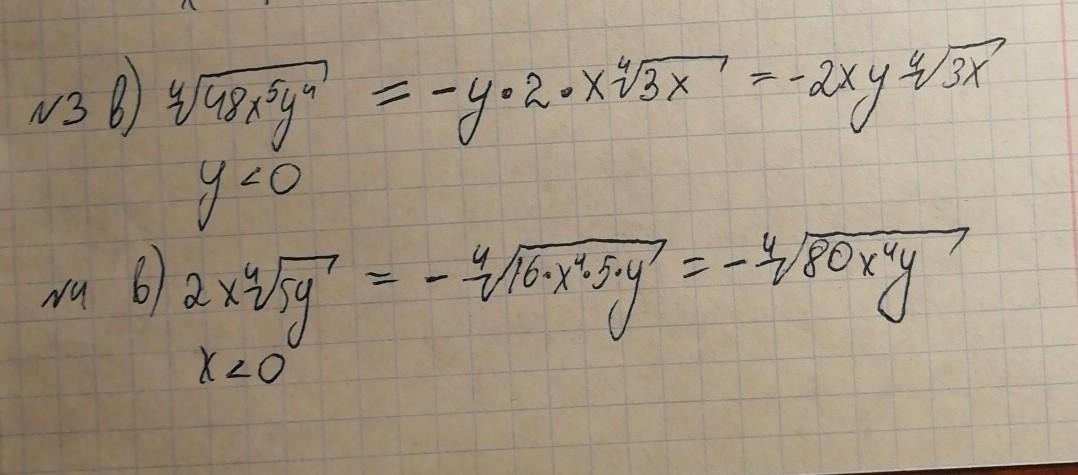 №3 в) ⁴√48x⁵y⁴ = -y·2·x⁴√3x = -2xy ⁴√3x
y<0
№4 в) 2x⁴√5y = -⁴√16·x⁴·5·y = -⁴√80x⁴y
x<0